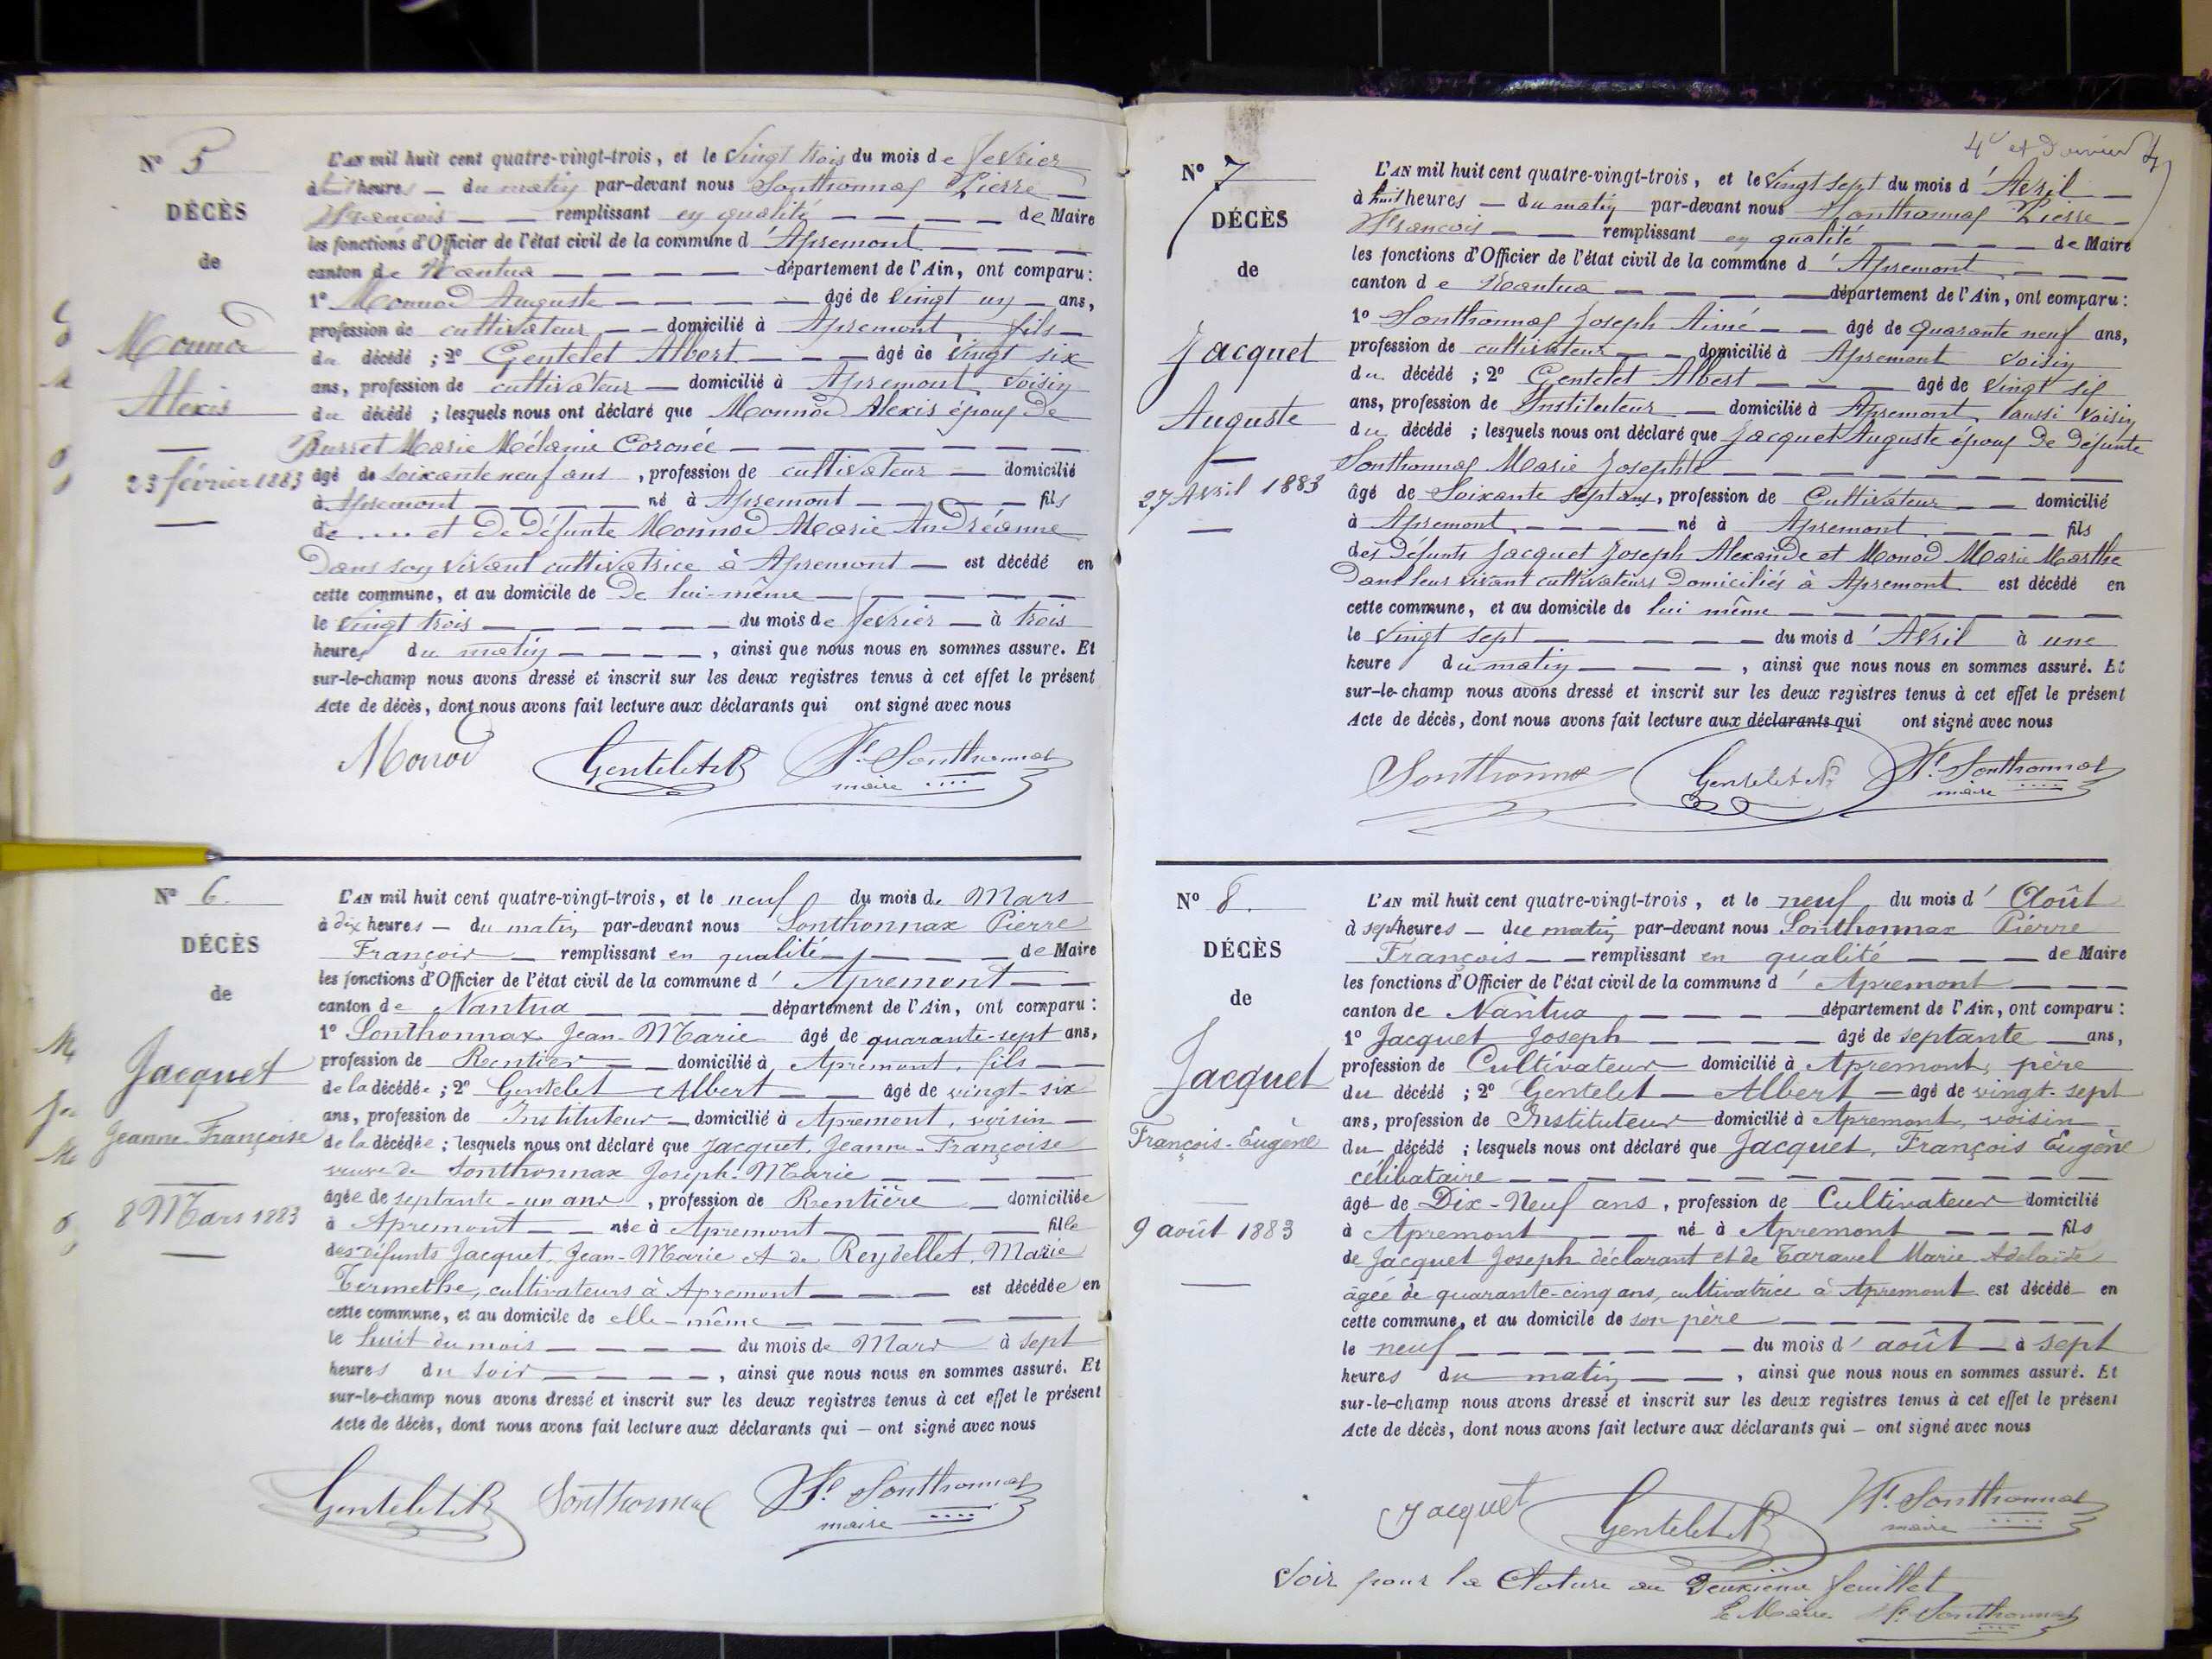 N° 5
DÉCÈS
de
Monnod
Alexis
23 février 1883
L'AN mil huit cent quatre-vingt-trois, et le vingt trois du mois de fevrier
à huit heures — du matin par-devant nous Sonthonnax Pierre
François — remplissant en qualité — de Maire
les fonctions d'Officier de l'état civil de la commune d'Apremont
canton de Nantua — département de l'Ain, ont comparu :
1° Monnod Auguste — âgé de vingt un ans,
profession de cultivateur — domicilié à Apremont, fils
du décédé ; 2° Gentelet Albert — âgé de vingt six
ans, profession de cultivateur — domicilié à Apremont, voisin
du décédé ; lesquels nous ont déclaré que Monnod Alexis époux de
Burret Marie Mélanie Coronée
âgé de soixante neuf ans, profession de cultivateur — domicilié
à Apremont — né à Apremont — fils
de .... et de défunte Monnod Marie Andréanne
dans son vivant cultivatrice à Apremont — est décédé en
cette commune, et au domicile de de lui-même
le vingt trois — du mois de fevrier — à trois
heures du matin —, ainsi que nous nous en sommes assuré. Et
sur-le-champ nous avons dressé et inscrit sur les deux registres tenus à cet effet le présent
Acte de décès, dont nous avons fait lecture aux déclarants qui ont signé avec nous
Monod Gentelet A Fs Sonthonnax
maire
N° 6.
DÉCÈS
de
Jacquet
Jeanne-Françoise
8 Mars 1883
L'AN mil huit cent quatre-vingt-trois, et le neuf du mois de Mars
à dix heures — du matin par-devant nous Sonthonnax Pierre
François — remplissant en qualité — de Maire
les fonctions d'Officier de l'état civil de la commune d'Apremont
canton de Nantua — département de l'Ain, ont comparu :
1° Sonthonnax Jean-Marie âgé de quarante-sept ans,
profession de Rentier — domicilié à Apremont, fils
de la décédée ; 2° Gentelet Albert — âgé de vingt-six
ans, profession de Instituteur — domicilié à Apremont, voisin
de la décédée ; lesquels nous ont déclaré que Jacquet, Jeanne-Françoise
veuve de Sonthonnax Joseph-Marie
âgée de septante-un ans, profession de Rentière — domiciliée
à Apremont — née à Apremont — fille
des défunts Jacquet, Jean-Marie et de Reydellet, Marie
Termethe, cultivateurs à Apremont — est décédée en
cette commune, et au domicile de elle-même
le huit du mois — du mois de Mars à sept
heures du soir —, ainsi que nous nous en sommes assuré. Et
sur-le-champ nous avons dressé et inscrit sur les deux registres tenus à cet effet le présent
Acte de décès, dont nous avons fait lecture aux déclarants qui — ont signé avec nous
Gentelet A Sonthonnax Fs Sonthonnax
maire
4e et dernier
N° 7
DÉCÈS
de
Jacquet
Auguste
27 Avril 1883
L'AN mil huit cent quatre-vingt-trois, et le vingt sept du mois d'Avril
à huit heures — du matin par-devant nous Sonthonnax Pierre
François — remplissant en qualité — de Maire
les fonctions d'Officier de l'état civil de la commune d'Apremont
canton de Nantua — département de l'Ain, ont comparu :
1° Sonthonnax Joseph Aimé — âgé de quarante neuf ans,
profession de cultivateur — domicilié à Apremont voisin
du décédé ; 2° Gentelet Albert — âgé de vingt six
ans, profession de Instituteur — domicilié à Apremont, aussi voisin
du décédé ; lesquels nous ont déclaré que Jacquet Auguste époux de défunte
Sonthonnax Marie Josephte
âgé de Soixante Sept ans, profession de Cultivateur — domicilié
à Apremont — né à Apremont — fils
des défunts Jacquet Joseph Alexande et Monod Marie Marthe
dans leur vivant cultivateurs domiciliés à Apremont est décédé en
cette commune, et au domicile de lui même
le vingt sept — du mois d'Avril à une
heure du matin —, ainsi que nous nous en sommes assuré. Et
sur-le-champ nous avons dressé et inscrit sur les deux registres tenus à cet effet le présent
Acte de décès, dont nous avons fait lecture aux déclarants qui ont signé avec nous
Sonthonnax Gentelet A Fs Sonthonnax
maire
N° 8.
DÉCÈS
de
Jacquet
François-Eugène
9 août 1883
L'AN mil huit cent quatre-vingt-trois, et le neuf du mois d'Août
à sept heures — du matin par-devant nous Sonthonnax Pierre
François — remplissant en qualité — de Maire
les fonctions d'Officier de l'état civil de la commune d'Apremont
canton de Nantua — département de l'Ain, ont comparu :
1° Jacquet Joseph — âgé de septante ans,
profession de Cultivateur — domicilié à Apremont, père
du décédé ; 2° Gentelet — Albert — âgé de vingt-sept
ans, profession de Instituteur — domicilié à Apremont, voisin
du décédé ; lesquels nous ont déclaré que Jacquet, François Eugène
célibataire
âgé de Dix-Neuf ans, profession de Cultivateur domicilié
à Apremont — né à Apremont — fils
de Jacquet Joseph déclarant et de Taravel Marie Adelaïde
âgée de quarante-cinq ans, cultivatrice à Apremont est décédé en
cette commune, et au domicile de son père
le neuf — du mois d'août — à sept
heures du matin —, ainsi que nous nous en sommes assuré. Et
sur-le-champ nous avons dressé et inscrit sur les deux registres tenus à cet effet le présent
Acte de décès, dont nous avons fait lecture aux déclarants qui — ont signé avec nous
Jacquet Gentelet A Fs Sonthonnax
maire
Voir pour la Cloture au deuxième feuillet
Le Maire Fs Sonthonnax